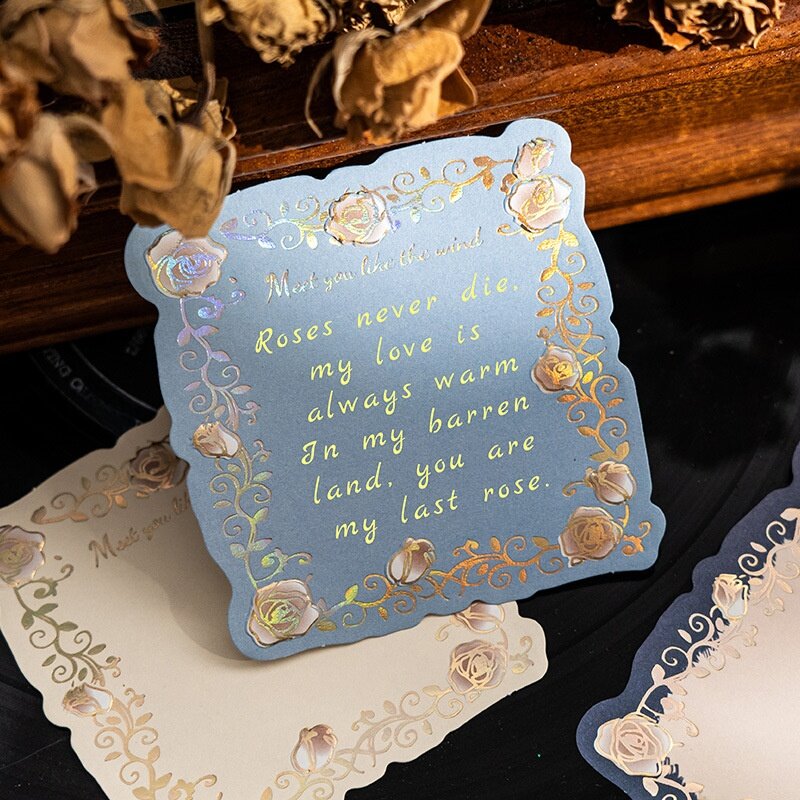 Meet you like the wind
Roses never die.
my love is
always warm
In my barren
land, you are
my last rose.
Meet you li